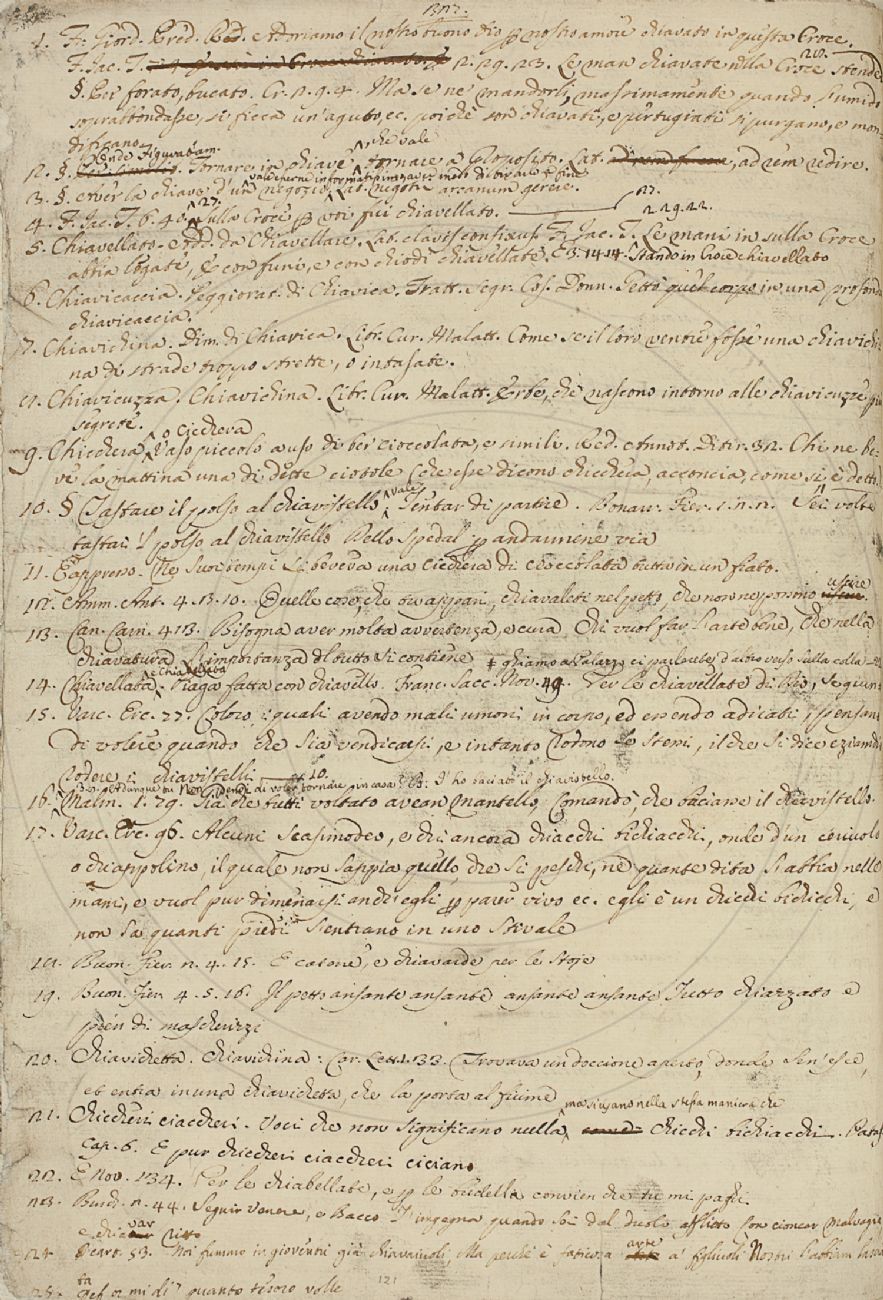 1. Fr. Giord. Pred. Red. Adoriamo il nostro buono Dio p nostro amore chiavato in questa Croce.
Fr. Jac. T. 2. 29. 23. Le man chiavate nella Croce stende
§. Per forato, bucato. Cr. 2. 9. 4. Ma se ne' mandorli, massimamente quando l'umido
soprabbondasse, si ficca un'aguto, ec. poichè son chiavati, e pertugiati si purgano, e mon
dificano
2. §. Tornare in chiave che vale tornare a proposito. Lat. ad rem redire.
3. §. Aver la chiave d'un negozio Lat. negotii arcanum gerere.
4. Fr. Jac. T. 6. 40. 27. Sulla Croce p voi fui chiavellato. 27.
2. 29. 22.
5. Chiavellato. Add. da Chiavellare. Lat. clavis confixus. Fr. Jac. T. Le mani in sulla Croce
abbia legate, e con funi, e con chiodi chiavellate. E 3. 14. 14. Stando in Croce chiavellato
6. Chiavicaccia. Peggiorat. di Chiavica. Tratt. segr. Cos. Donn. Gettò quel corpo in una profonda
chiavicaccia.
7. Chiavichina. Dim. di Chiavica. Libr. Cur. Malatt. Come se il loro ventre fosse una chiavichi
na di strade troppo strette, o intasate.
8. Chiavicuzza. Chiavichina. Libr. Cur. Malatt. Erbe, che nascono intorno alle chiavicuzze più
segrete.
9. Chicchera, o cicchera Vaso piccolo a uso di ber cioccolata, e simili. Red. Annot. Ditir. 32. Chi ne be
ve la mattina una di dette ciotole (che esse dicono chicchera, acconcia, come si è detto
10. § Tastare il polso al chiavistello vale Tentar di partire. Bonarr. Fier. Sei volte
tastai 'l polso al chiavistello Dello spedal p andarmene via
11. E appresso. Ne' suoi tempi si beveva una cicchera di cioccolatte tutta in un fiato.
12. Amm. Ant. 4. 3. 10. Quelle cose, che tu appari, chiavaleti nel petto, che non ne possino uscire
13. Can. Carn. 413. Bisogna aver molta avvertenza, e cura Chi vuol far l'arte bene, che nella
chiavatura L'importanza del tutto si contiene
14. Chiavellata, e Chiabellata Piaga fatta con chiavello. Franc. Sacc. Nov. 49. Per le chiavellate di Dio, se giun
15. Varc. Erc. 77. Coloro, i quali avendo mali umori in corpo, ed essendo adirati, pensano
di volere quando che sia vendicarsi, e intanto rodono se stessi, il che si dice eziandio
rodere i chiavistelli
16. Malm. 1. 79. Già che tutti voltato avean mantello, Comandò, che baciasse il chiavistello
17. Varc. Erc. 96. Alcuni Scasimodeo, e chi ancora chiacchi bichiacchi, onde d'un ceriuolo
o chiappolino, il quale non sappia quello, che si peschi, nè quante dita s'abbia nelle
mani, e vuol pur dimenarsi anch'egli p parer vivo ec. egli è un chicchi bichicchi, e
non sa quanti piedi s'entrano in uno stivale
18. Buon. Fier. 2. 4. 15. E catene, e chiavarde per le stoje
19. Buon. Fier. 4. 5. 16. Il petto ansante ansante ansante ansante Tutto chiazzato e
pien di mascherizzi
20. Chiavichetta. Chiavichina. Car. Lett. 1. 33. Trovava un doccione aperto, donde sen'esce,
et entra in una chiavichetta, che la porta al fiume
21. Chiccheri ciaccheri. Voci che non significano nulla, ma si usano nella stessa maniera che chicchi bichiacchi. Pataf
Cap. 6. E pur chiccheri ciaccheri ciciano
22. E Nov. 134. Per le chiabellate, e p le budella convien che tu mi paghi
23. Burch. 2. 44. Seguir Venere, e Bacco M'ingegna quando son dal duolo afflitto
24. Noi fummo in gioventù già chiavaiuoli, arte a' figliuoli nostri
quanto tesoro volle
121